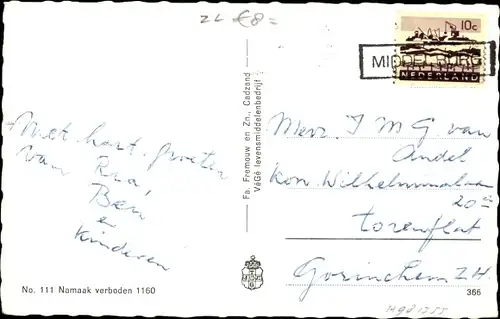 ZL €8=
10c
MIDDELBURG
NEDERLAND
Met hart. groeten
van Ria,
Ben
en
kinderen
Fa. Fremouw en Zn., Cadzand
VéGé levensmiddelenbedrijf
Mevr. J M G. van
Andel
Kon. Wilhelminalaan
20
torenflat
Gorinchem Z.H
No. 111 Namaak verboden 1160
366
H981255